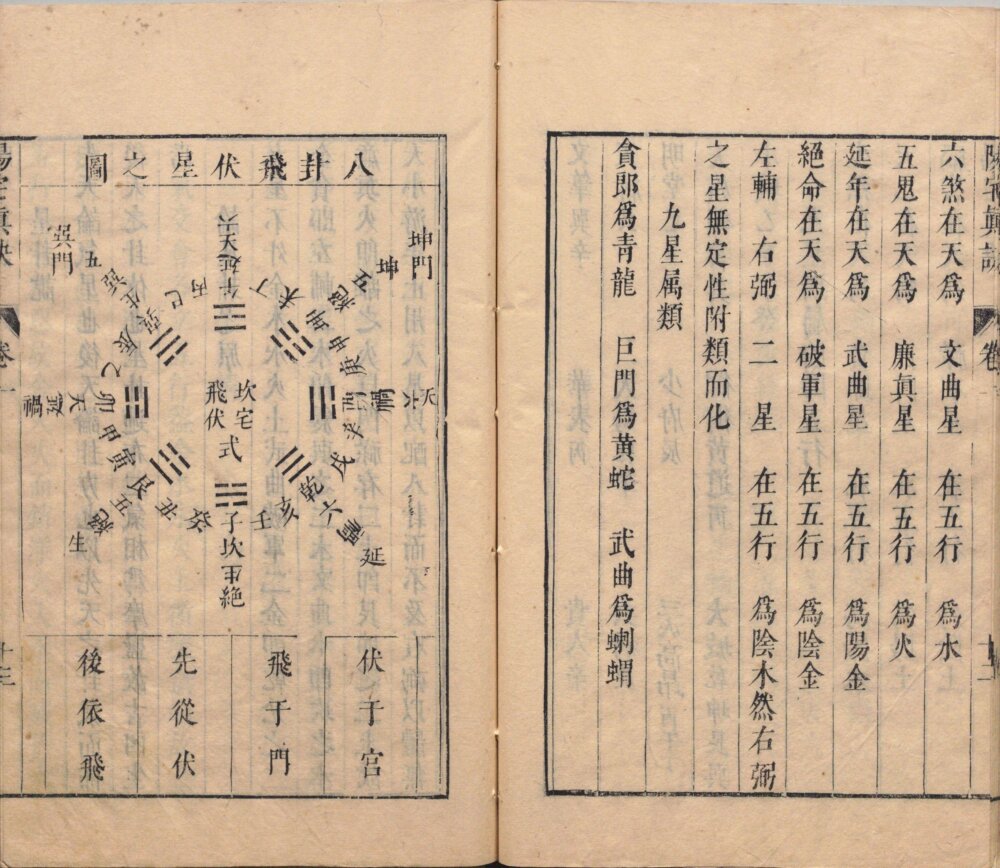 六煞在天爲 文曲星 在五行 爲水
五鬼在天爲 廉眞星 在五行 爲火
延年在天爲 武曲星 在五行 爲陽金
絕命在天爲 破軍星 在五行 爲陰金
左輔 右弼 二 星 在五行 爲陰木然右弼
之星無定性附類而化
九星属類
貪郎爲青龍 巨門爲黄蛇 武曲爲蝌蝟
八卦飛伏星之圖
坤門
坤
巽門
五
天
禍
生
延
午
丁
未
坤
申
庚
酉
戌
乾
亥
壬
子坎
癸
丑
艮
寅
甲
卯
乙
辰
巳
丙
坎宅
飛伏
式
伏于宮
飛于門
先從伏
後依飛